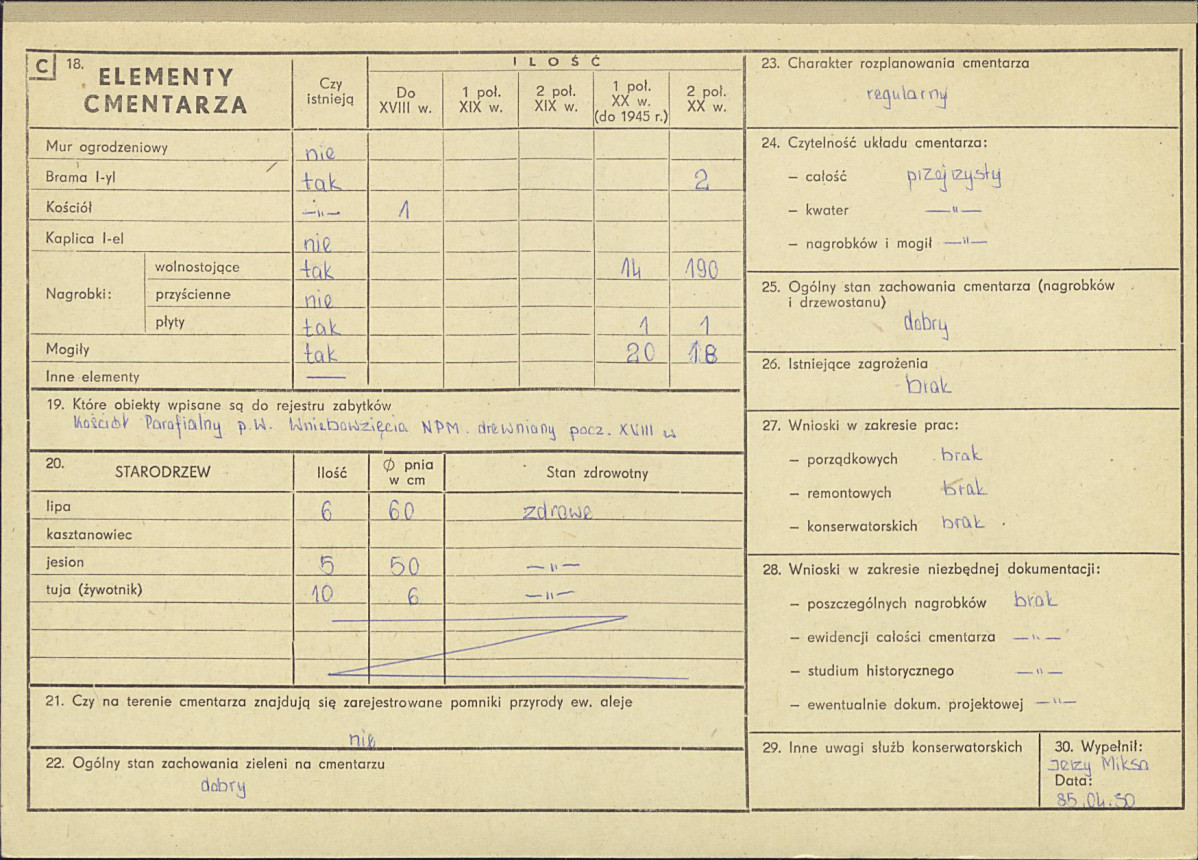 C 18. ELEMENTY CMENTARZA
Czy istnieją
ILOŚĆ
Do XVIII w.
1 poł. XIX w.
2 poł. XIX w.
1 poł. XX w. (do 1945 r.)
2 poł. XX w.
Mur ogrodzeniowy nie
Brama I-yl tak 2
Kościół —"— 1
Kaplica I-el nie
Nagrobki:
wolnostojące tak 14 190
przyścienne nie
płyty tak 1 1
Mogiły tak 20 18
Inne elementy —
19. Które obiekty wpisane są do rejestru zabytków
Kościół Parafialny p.w. Wniebowzięcia NPM. drewniany pocz. XVIII w
20. STARODRZEW Ilość Ø pnia w cm Stan zdrowotny
lipa 6 60 zdrowe
kasztanowiec
jesion 5 50 —"—
tuja (żywotnik) 10 6 —"—
21. Czy na terenie cmentarza znajdują się zarejestrowane pomniki przyrody ew. aleje
nie
22. Ogólny stan zachowania zieleni na cmentarzu
dobry
23. Charakter rozplanowania cmentarza
regularny
24. Czytelność układu cmentarza:
– całość przejrzysty
– kwater —"—
– nagrobków i mogił —"—
25. Ogólny stan zachowania cmentarza (nagrobków
i drzewostanu)
dobry
26. Istniejące zagrożenia
brak
27. Wnioski w zakresie prac:
– porządkowych brak
– remontowych brak
– konserwatorskich brak
28. Wnioski w zakresie niezbędnej dokumentacji:
– poszczególnych nagrobków brak
– ewidencji całości cmentarza —"—
– studium historycznego —"—
– ewentualnie dokum. projektowej —"—
29. Inne uwagi służb konserwatorskich
30. Wypełnił:
Jerzy Miksa
Data:
85.04.30